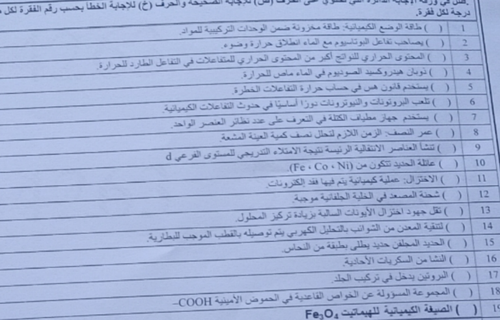 الإجابة الصحيحة والحرف (خ) للإجابة الخطأ بحسب رقم الفقرة
درجة لكل فقرة.
1 ( ) طاقة الوضع الكيميائية: طاقة مخزونة ضمن الوحدات التركيبية للمواد.
2 ( ) يصاحب تفاعل البوتاسيوم مع الماء انطلاق حرارة وضوء.
3 ( ) المحتوى الحراري للنواتج أكبر من المحتوى الحراري للمتفاعلات في التفاعل الطارد للحرارة.
4 ( ) ذوبان هيدروكسيد الصوديوم في الماء ماص للحرارة.
5 ( ) يستخدم قانون هس في حساب حرارة التفاعلات الخطرة.
6 ( ) تلعب البروتونات والنيوترونات دورًا أساسيًا في حدوث التفاعلات الكيميائية.
7 ( ) يستخدم جهاز مطياف الكتلة في التعرف على عدد نظائر العنصر الواحد.
8 ( ) عمر النصف: الزمن اللازم لتحلل نصف كمية العينة المشعة
9 ( ) تنشأ العناصر الانتقالية الرئيسة نتيجة الامتلاء التدريجي للمستوى الفرعي d
10 ( ) عائلة الحديد تتكون من (Fe ، Co ، Ni).
11 ( ) الاختزال: عملية كيميائية يتم فيها فقد إلكترونات.
12 ( ) شحنة المصعد في الخلية الجلفانية موجبة.
13 ( ) تقل جهود اختزال الأيونات السالبة بزيادة تركيز المحلول.
14 ( ) لتنقية المعدن من الشوائب بالتحليل الكهربي يتم توصيله بالقطب الموجب للبطارية.
15 ( ) الحديد المجلفن حديد يطلى بطبقة من النحاس.
16 ( ) النشا من السكريات الأحادية.
17 ( ) البروتين يدخل في تركيب الجلد.
18 ( ) المجموعة المسؤولة عن الخواص القاعدية في الحموض الأمينية COOH–
( ) الصيغة الكيميائية للهيماتيت Fe₃O₄